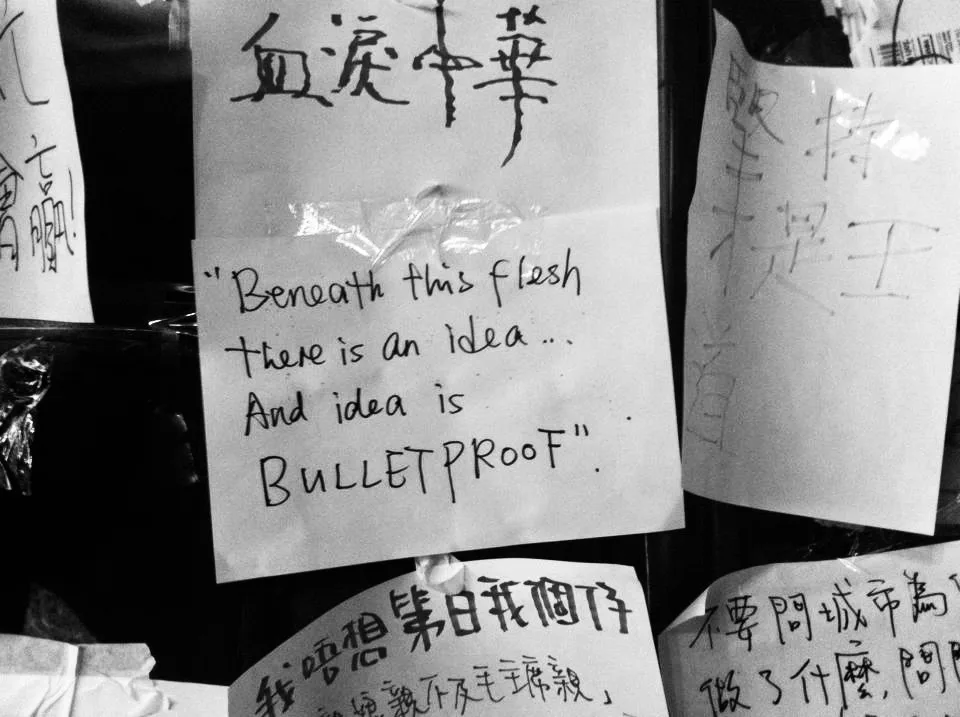 血淚中華
"Beneath this flesh
there is an idea...
And idea is
BULLETPROOF".
會贏!
堅持
才是王
道
我唔想第日我個仔
親不及毛主席親」
不要問城市為
做了什麼,問